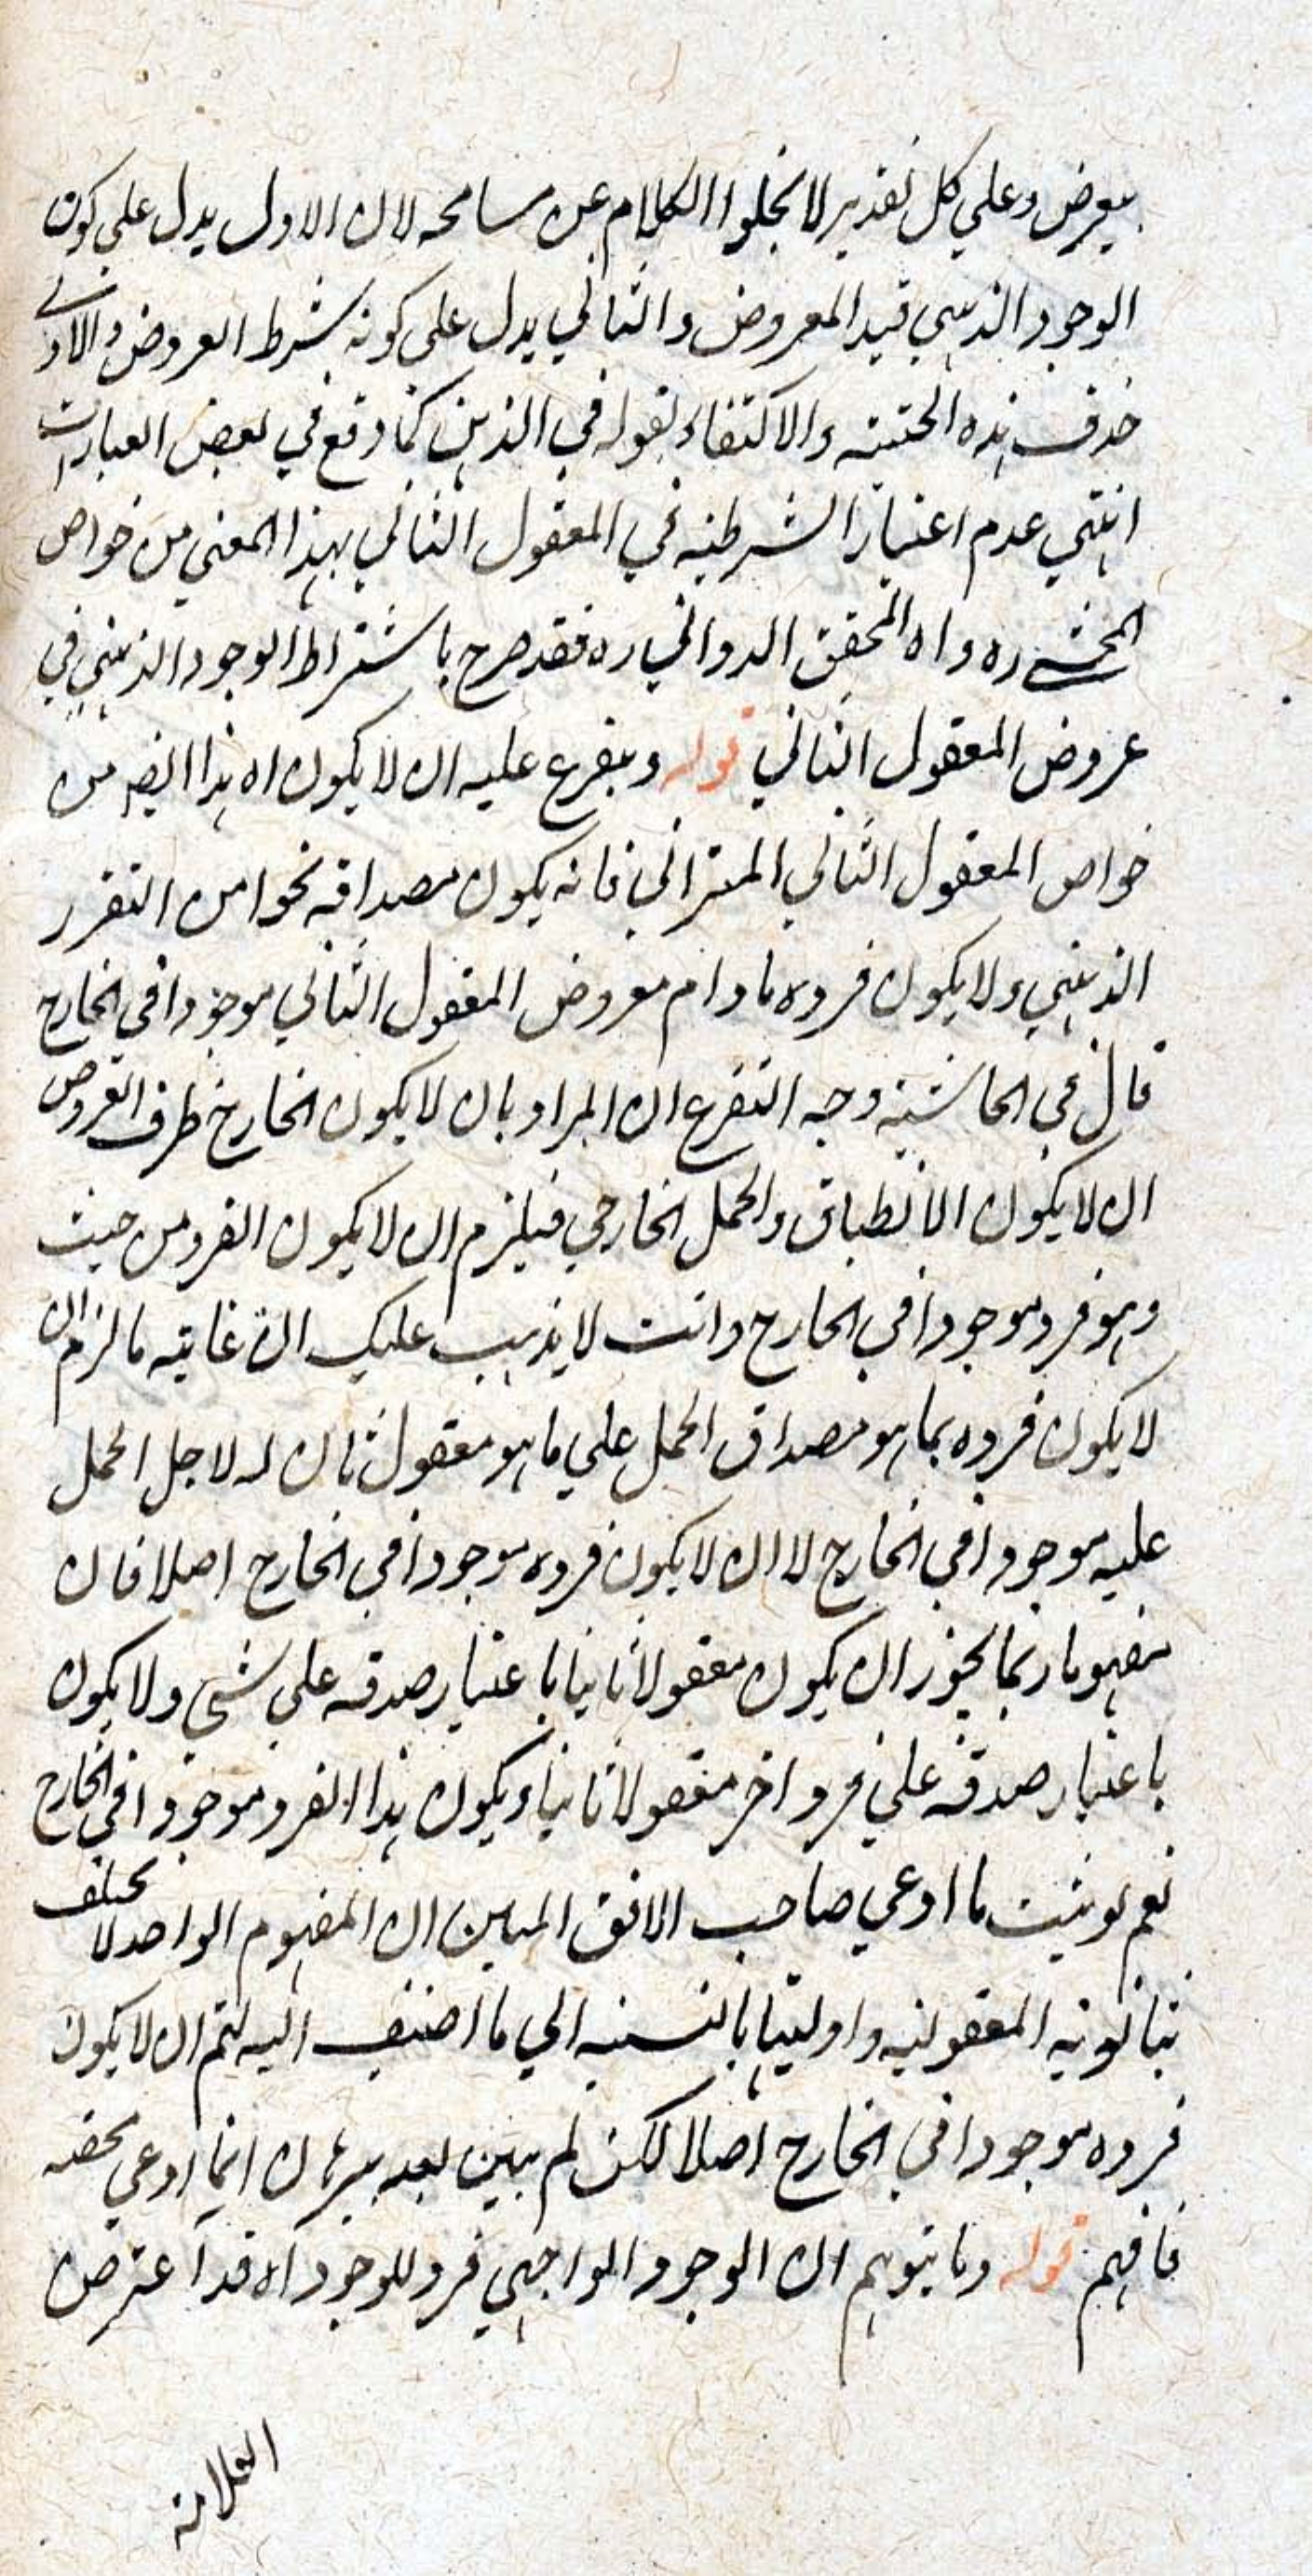 يعرض وعلي كل تقدير لا يخلوا الكلام عن مسامحه لان الاول يدل علي كون
الوجود الذهني قيد المعروض والثاني يدل على كونه شرط العروض والاولى
حذف هذه الحيثية والاكتفاء بقوله في الذهن كما وقع في بعض العبارات
انتهي عدم اعتبار الشرطية في المعقول الثاني بهذا المعني من خواص
المحشي ره واه المحقق الدواني ره فقد صرح باشتراط الوجود الذهني في
عروض المعقول الثاني قوله ويتفرع عليه ان لا يكون اه هذا ايضا من
خواص المعقول الثاني الميزاني فانه يكون مصداقه نحوا من التقرر
الذهني ولا يكون فرده مادام معروض المعقول الثاني موجودا في الخارج
قال في الحاشية وجه التفرع ان المراد بان لا يكون الخارج ظرف العروض
ان لا يكون الانطباق والحمل الخارجي فيلزم ان لا يكون الفرد من حيث
وهو فرد موجودا في الخارج وانت لا يذهب عليك ان غاية ما لزم ان
لا يكون فرده بما هو مصداق الحمل علي ما هو معقول ثان له لاجل الحمل
عليه موجودا في الخارج لا ان لا يكون فرده موجودا في الخارج اصلا فان
مفهوما ربما يجوز ان يكون معقولا ثانيا باعتبار صدقه علي شي ولا يكون
باعتبار صدقه علي فرد اخر معقولا ثانيا ويكون هذا الفرد موجودا في الخارج
نعم لو ثبت ما ادعي صاحب الافق المبين ان المفهوم الواحد لا يختلف
بثانوية المعقولية واوليتها بالنسبة الي ما اضيف اليه لتم ان لا يكون
فرده موجودا في الخارج اصلا لكن لم يبين بعد ببرهان انما ادعي محضه
فافهم قوله وما يتوهم ان الوجود الواجبي فرد للوجود اه قد اعترض
العلامة